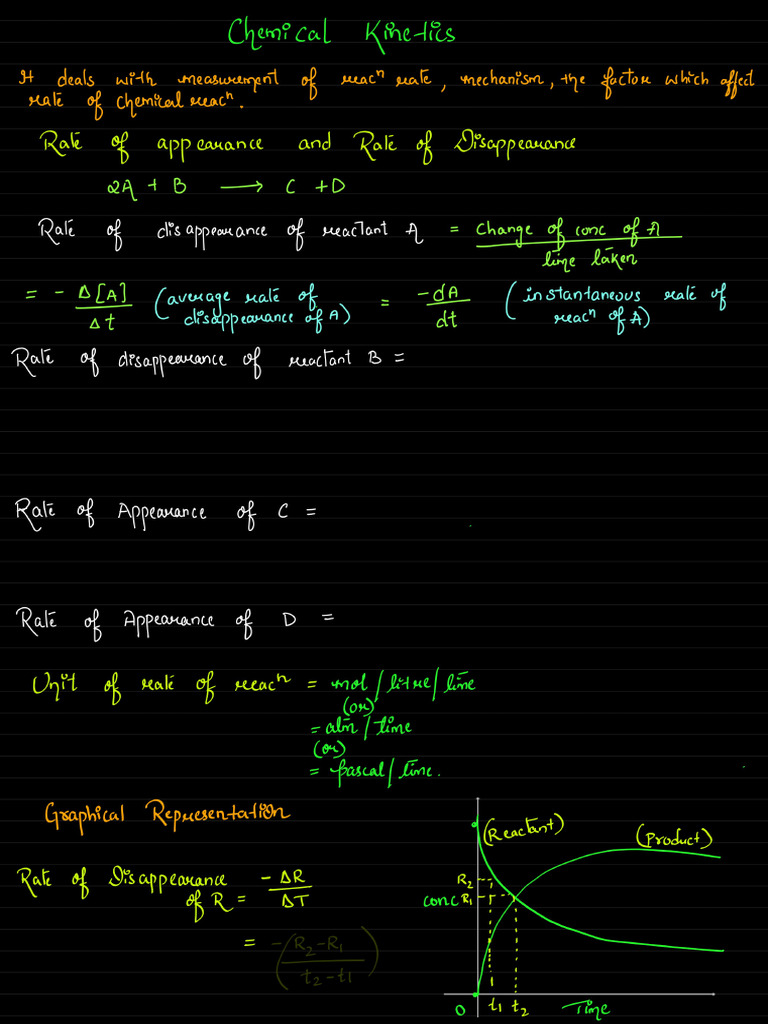 Chemical Kinetics
It deals with measurement of reacⁿ rate, mechanism, the factor which affect
rate of chemical reacⁿ.
Rate of appearance and Rate of Disappearance
2A + B ⟶ C + D
Rate of disappearance of reactant A = Change of conc of A / time taken
= - Δ[A] / Δt (average rate of disappearance of A) = -dA / dt (instantaneous rate of reacⁿ of A)
Rate of disappearance of reactant B =
Rate of Appearance of C =
Rate of Appearance of D =
Unit of rate of reacⁿ = mol/litre/time
(or)
= atm/time
(or)
= pascal/time.
Graphical Representation
(Reactant)
(Product)
Rate of Disappearance of R = -ΔR / ΔT
= -(R₂-R₁ / t₂-t₁)
R₂
conc R₁
t₁ t₂
O Time